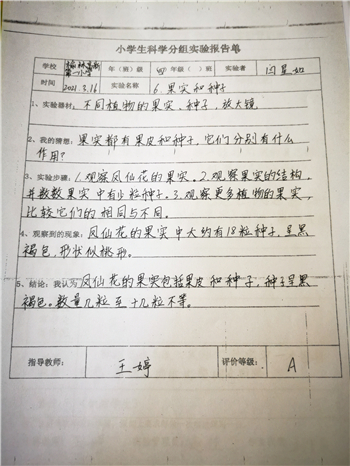 小学生科学分组实验报告单
学校 榆林高新第一小学 年(班)级 四年级( )班 实验者 闫星如
时间 2021.3.16 实验名称 6.果实和种子
1、实验器材:不同植物的果实、种子,放大镜
2、我的猜想:果实都有果皮和种子,它们分别有什么
作用?
3、实验步骤:1.观察凤仙花的果实。2.观察果实的结构,
并数数果实中有少粒种子。3.观察更多植物的果实,
比较它们的相同与不同。
4、观察到的现象:凤仙花的果实中大约有18粒种子,呈黑
褐包,形状似桃形。
5、结论:我认为凤仙花的果实包括果皮和种子,种子呈黑
褐包。数量几粒至十几粒不等。
指导教师: 王婷 评价等级: A